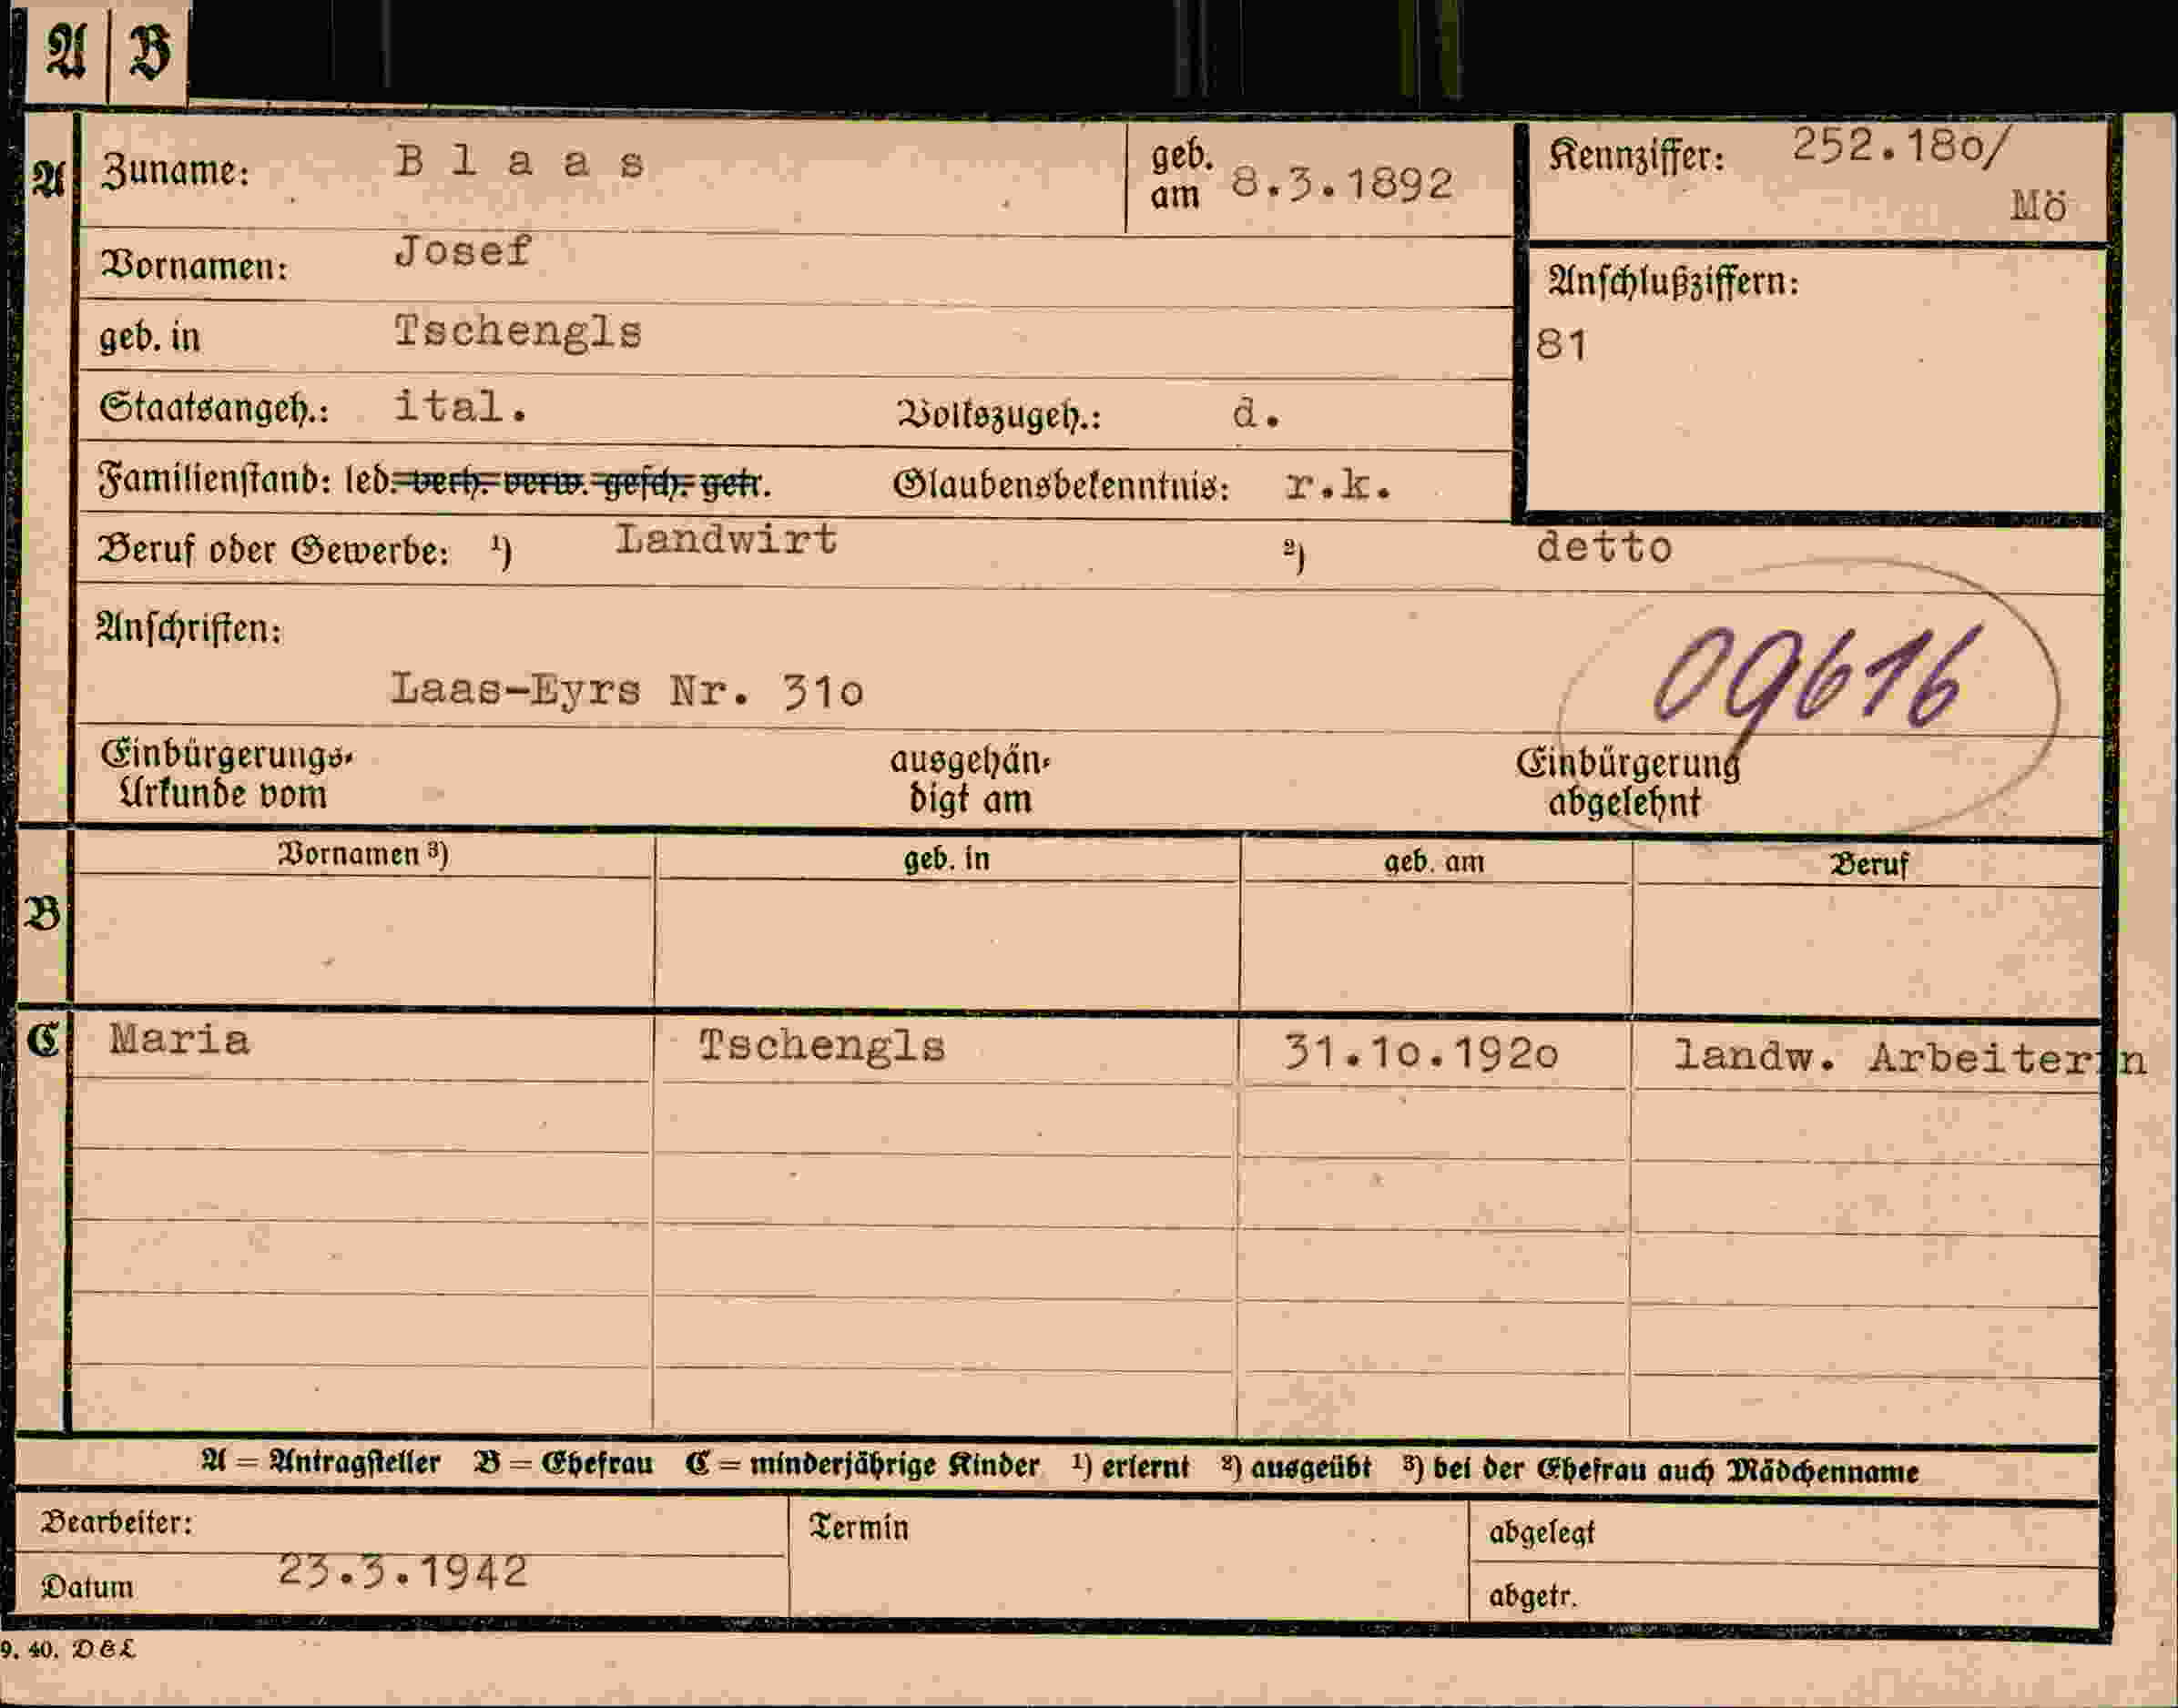 A | B
A Zuname: B l a a s geb. am 8.3.1892 Kennziffer: 252.18o/
Mö
Vornamen: Josef
Anschlußziffern:
geb. in Tschengls
81
Staatsangeh.: ital. Volkszugeh.: d.
Familienstand: led. verh. verw. gesch. getr. Glaubensbekenntnis: r.k.
Beruf oder Gewerbe: ¹) Landwirt ²) detto
Anschriften:
09616
Laas-Eyrs Nr. 31o
Einbürgerungs- ausgehän- Einbürgerung
Urkunde vom digt am abgelehnt
Vornamen ³) geb. in geb. am Beruf
B
C Maria Tschengls 31.1o.192o landw. Arbeiterin
A = Antragsteller B = Ehefrau C = minderjährige Kinder ¹) erlernt ²) ausgeübt ³) bei der Ehefrau auch Mädchenname
Bearbeiter: Termin abgelegt
Datum 23.3.1942 abgetr.
9. 40. D&L